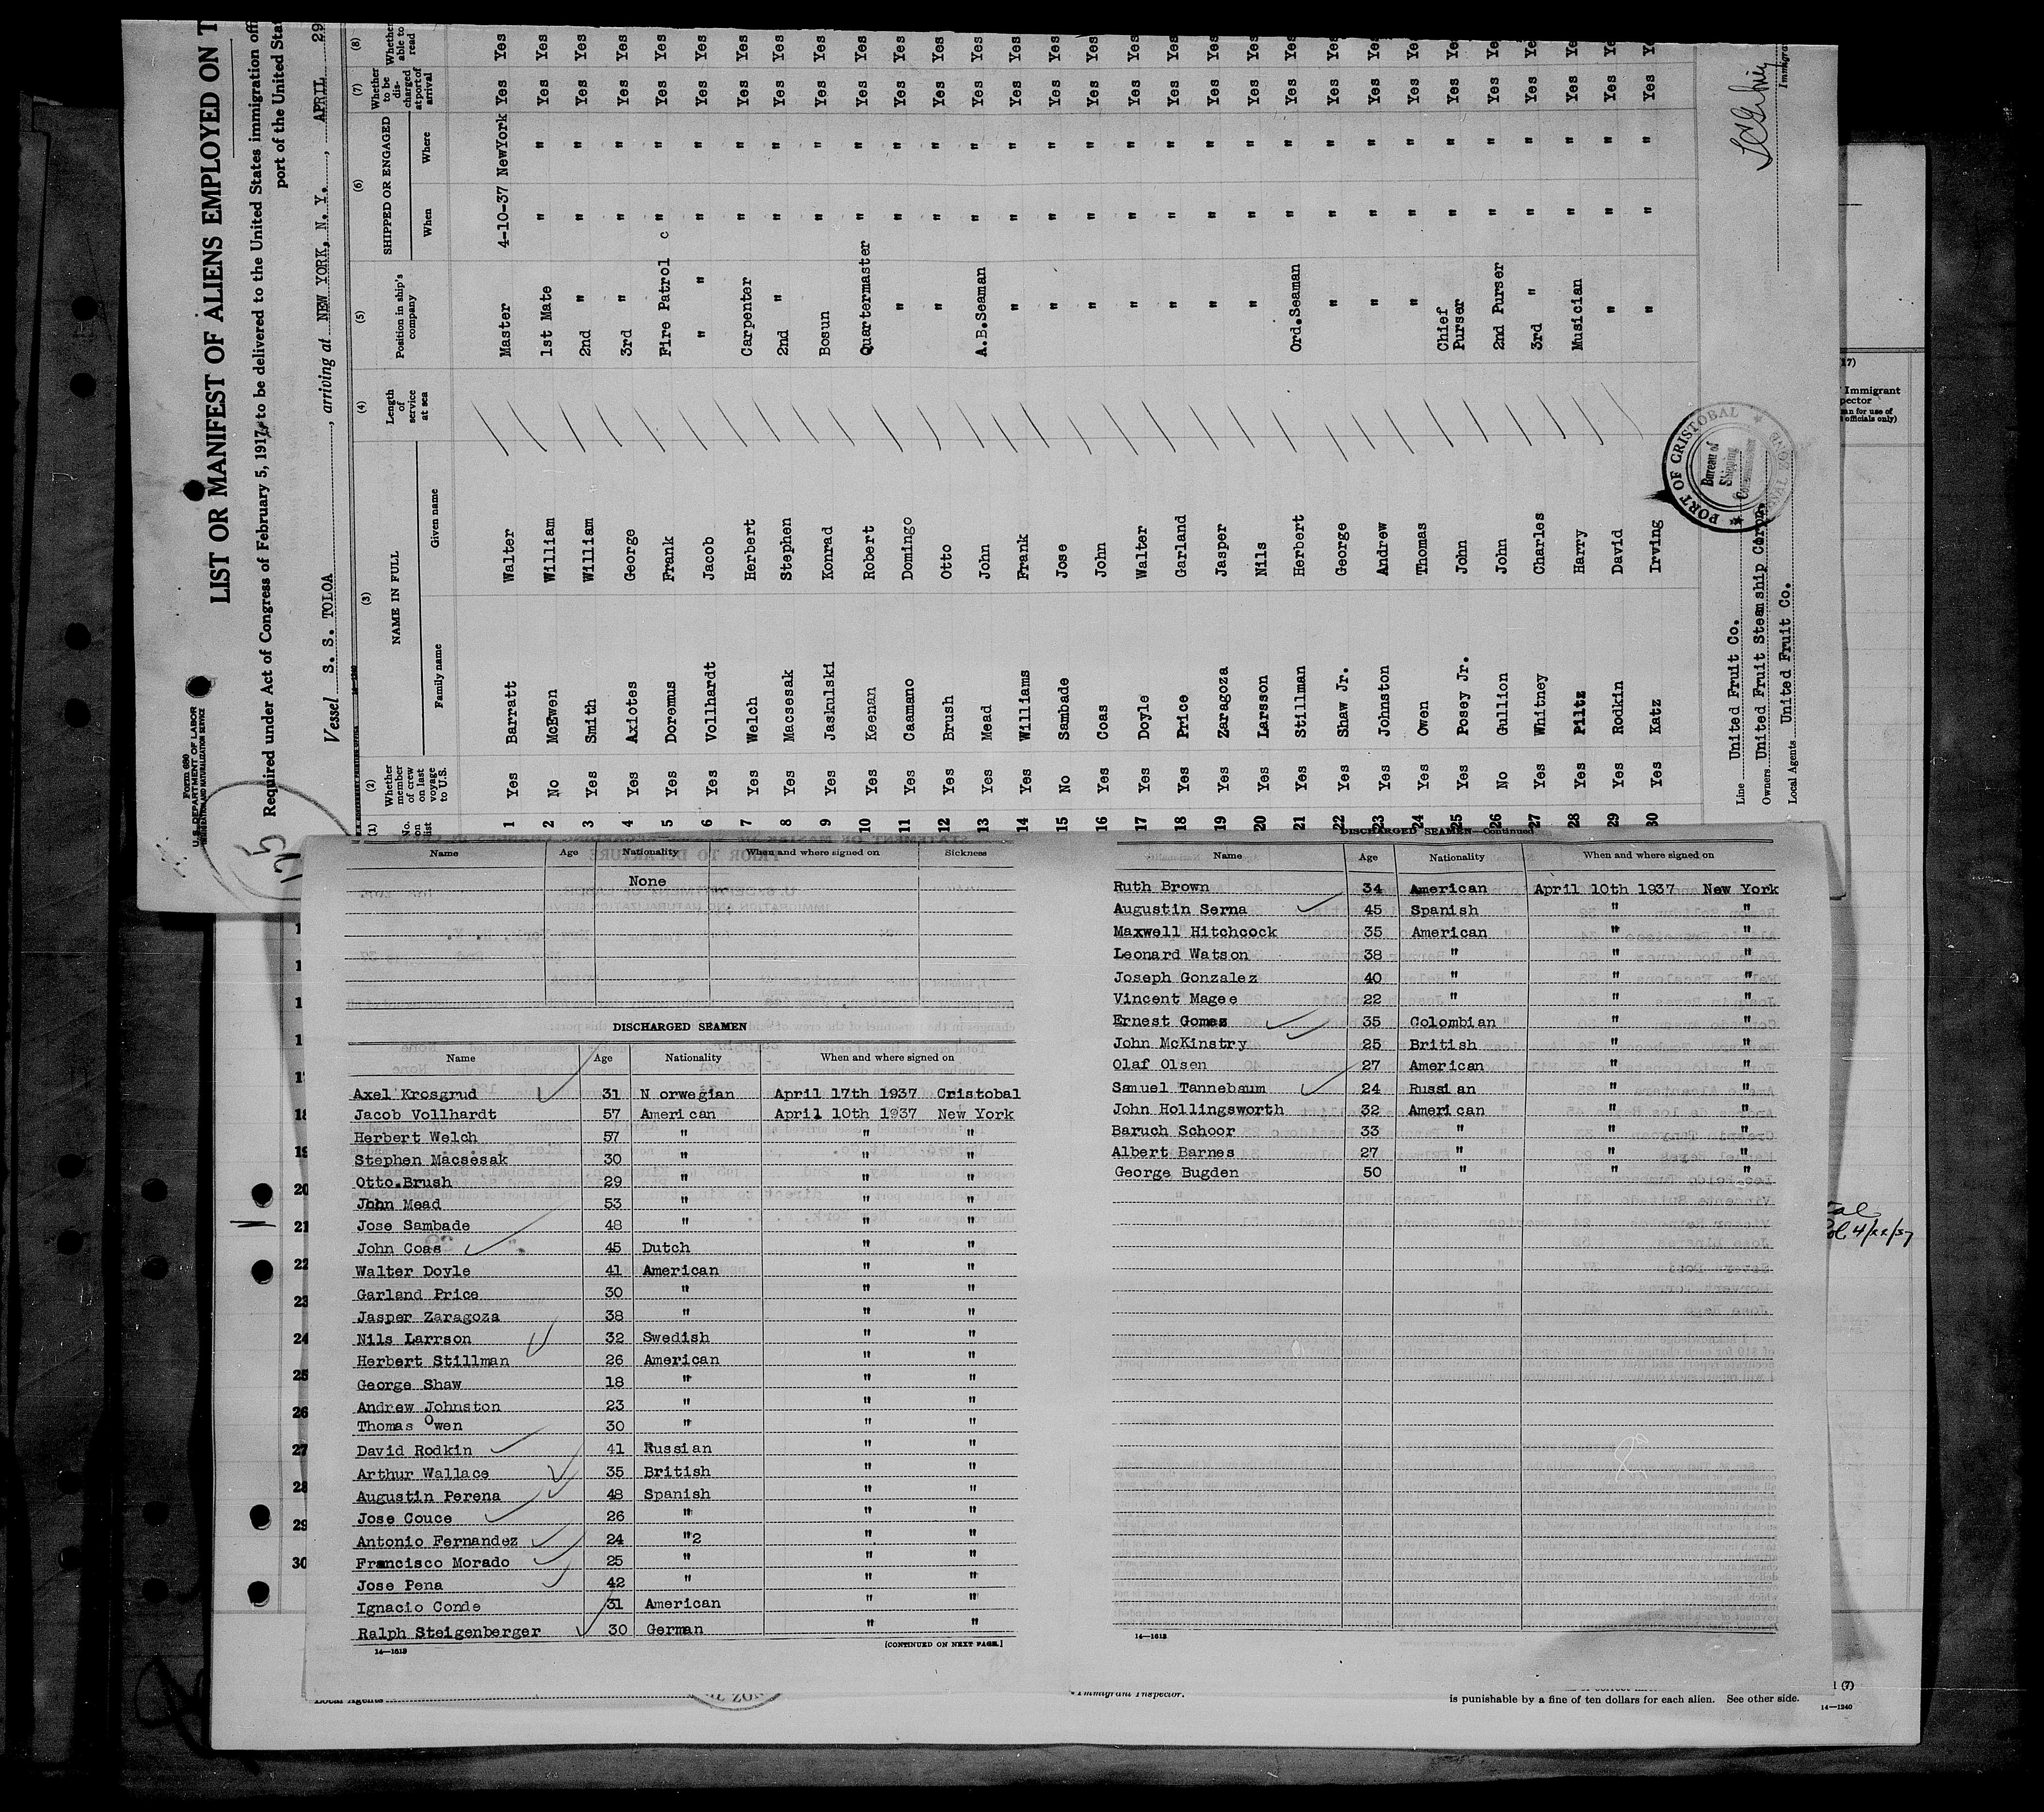 Form 680
U. S. DEPARTMENT OF LABOR
IMMIGRATION AND NATURALIZATION SERVICE
LIST OR MANIFEST OF ALIENS EMPLOYED ON T
Required under Act of Congress of February 5, 1917, to be delivered to the United States immigration off
port of the United Sta
Vessel S. S. TOLOA, arriving at NEW YORK, N. Y., APRIL 29
(1) (2) (3) (4) (5) (6) (7) (8)
No. on list Whether member of crew on last voyage to U.S. NAME IN FULL Family name Given name Length of service at sea Position in ship's company SHIPPED OR ENGAGED When Where Whether to be discharged at port of arrival Whether able to read
1 Yes Barratt Walter Master 4-10-37 NewYork Yes Yes
2 No McEwen William 1st Mate " " Yes Yes
3 Yes Smith William 2nd " " " Yes Yes
4 Yes Axiotes George 3rd " " " Yes Yes
5 Yes Doremus Frank Fire Patrol c " " Yes Yes
6 Yes Vollhardt Jacob " " " " Yes Yes
7 Yes Welch Herbert Carpenter " " Yes Yes
8 Yes Macsesak Stephen 2nd " " " Yes Yes
9 Yes Jaskulski Konrad Bosun " " Yes Yes
10 Yes Keenan Robert Quartermaster " " Yes Yes
11 Yes Caamano Domingo " " " Yes Yes
12 Yes Brush Otto " " " Yes Yes
13 Yes Mead John A.B.Seaman " " Yes Yes
14 Yes Williams Frank " " " Yes Yes
15 No Sambade Jose " " " Yes Yes
16 Yes Coas John " " " Yes Yes
17 Yes Doyle Walter " " " Yes Yes
18 Yes Price Garland " " " Yes Yes
19 Yes Zaragoza Jasper " " " Yes Yes
20 Yes Larsson Nils " " " Yes Yes
21 Yes Stillman Herbert Ord.Seaman " " Yes Yes
22 Yes Shaw Jr. George " " " Yes Yes
23 Yes Johnston Andrew " " " Yes Yes
24 Yes Owen Thomas " " " Yes Yes
25 Yes Posey Jr. John Chief Purser " " Yes Ye
26 No Gullion John 2nd Purser " " Yes Ye
27 Yes Whitney Charles 3rd " " " Yes Ye
28 Yes Piltz Harry Musician " " Yes Ye
29 Yes Rodkin David " " " Yes Ye
30 Yes Katz Irving " " " Yes Ye
Line United Fruit Co.
Owners United Fruit Steamship Corpn.
Local Agents United Fruit Co.
PORT OF CRISTOBAL
Bureau of
Shipping
Commissioner
CANAL ZONE
Immigra
17)
Immigrant
pector
an for use of
officials only)
Name Age Nationality When and where signed on Sickness
None
DISCHARGED SEAMEN
Name Age Nationality When and where signed on
Axel Krosgrud 31 N orwegian April 17th 1937 Cristobal
Jacob Vollhardt 57 American April 10th 1937 New York
Herbert Welch 57 " " "
Stephen Macsesak 30 " " "
Otto.Brush 29 " " "
John Mead 53 " " "
Jose Sambade 48 " " "
John Coas 45 Dutch " "
Walter Doyle 41 American " "
Garland Price 30 " " "
Jasper Zaragoza 38 " " "
Nils Larrson 32 Swedish " "
Herbert Stillman 26 American " "
George Shaw 18 " " "
Andrew Johnston 23 " "
Thomas Owen 30 " " "
David Rodkin 41 Russian " "
Arthur Wallace 35 British " "
Augustin Perena 48 Spanish " "
Jose Couce 26 " " "
Antonio Fernandez 24 "2 " "
Francisco Morado 25 " " "
Jose Pena 42 " " "
Ignacio Conde 31 American " "
Ralph Steigenberger 30 German " "
14—1613
[CONTINUED ON NEXT PAGE.]
DISCHARGED SEAMEN—Continued
Name Age Nationality When and where signed on
Ruth Brown 34 American April 10th 1937 New York
Augustin Serna 45 Spanish " "
Maxwell Hitchcock 35 American " "
Leonard Watson 38 " " "
Joseph Gonzalez 40 " " "
Vincent Magee 22 " " "
Ernest Gomez 35 Colombian " "
John McKinstry 25 British " "
Olaf Olsen 27 American " "
Samuel Tannebaum 24 Russian " "
John Hollingsworth 32 American " "
Baruch Schoor 33 " " "
Albert Barnes 27 " " "
George Bugden 50 " " "
14—1613
18
19
20
21
22
23
24
25
26
27
28
29
30
4/22/37
Local Agents
Immigrant Inspector.
1 (7)
is punishable by a fine of ten dollars for each alien. See other side.
14—1240